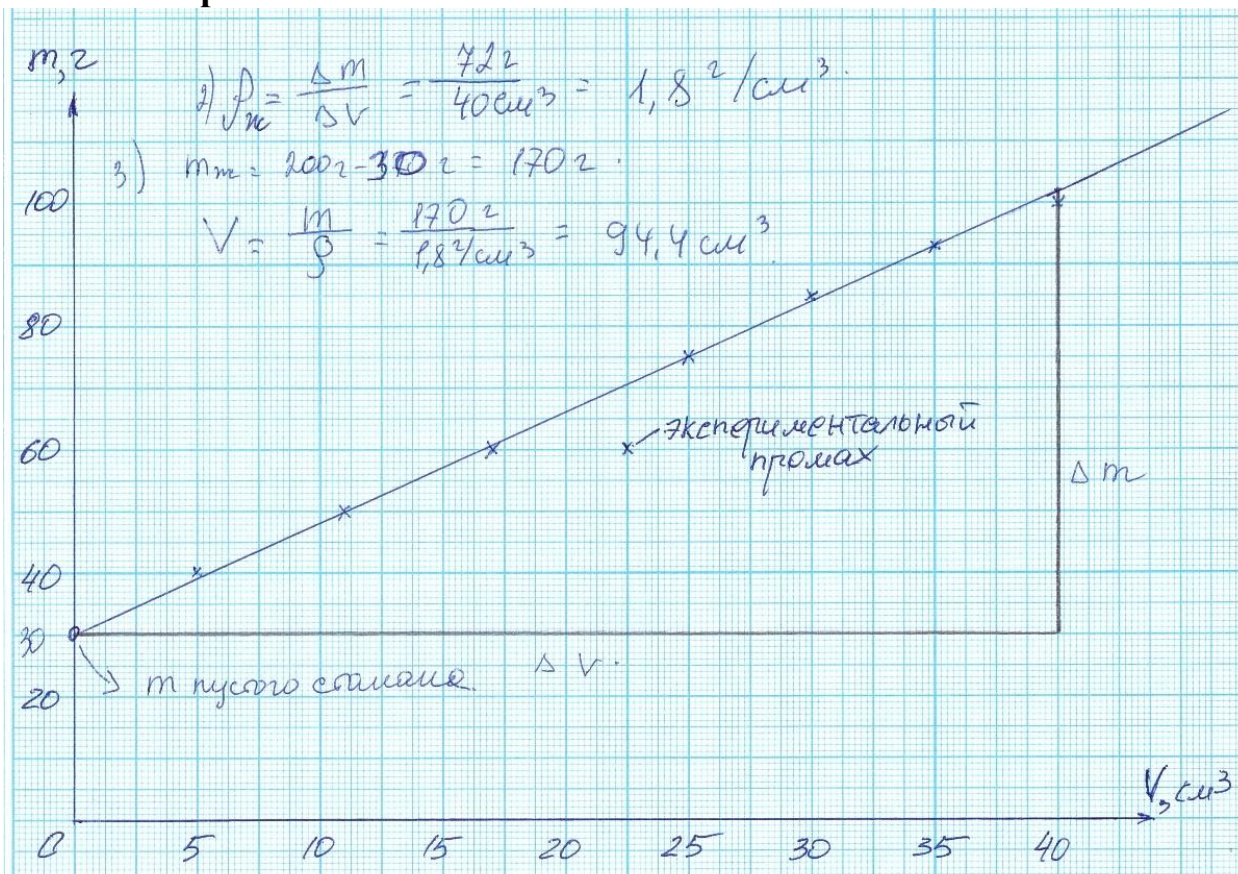 m, г
2) ρж = Δm/ΔV = 72 г/40 см³ = 1,8 г/см³.
3) mж = 200 г - 30 г = 170 г.
V = m/ρ = 170 г/1,8 г/см³ = 94,4 см³.
100
80
60
экспериментальный
промах
Δ m
40
30
Δ V.
m пустого стакана
20
V, см³
0 5 10 15 20 25 30 35 40